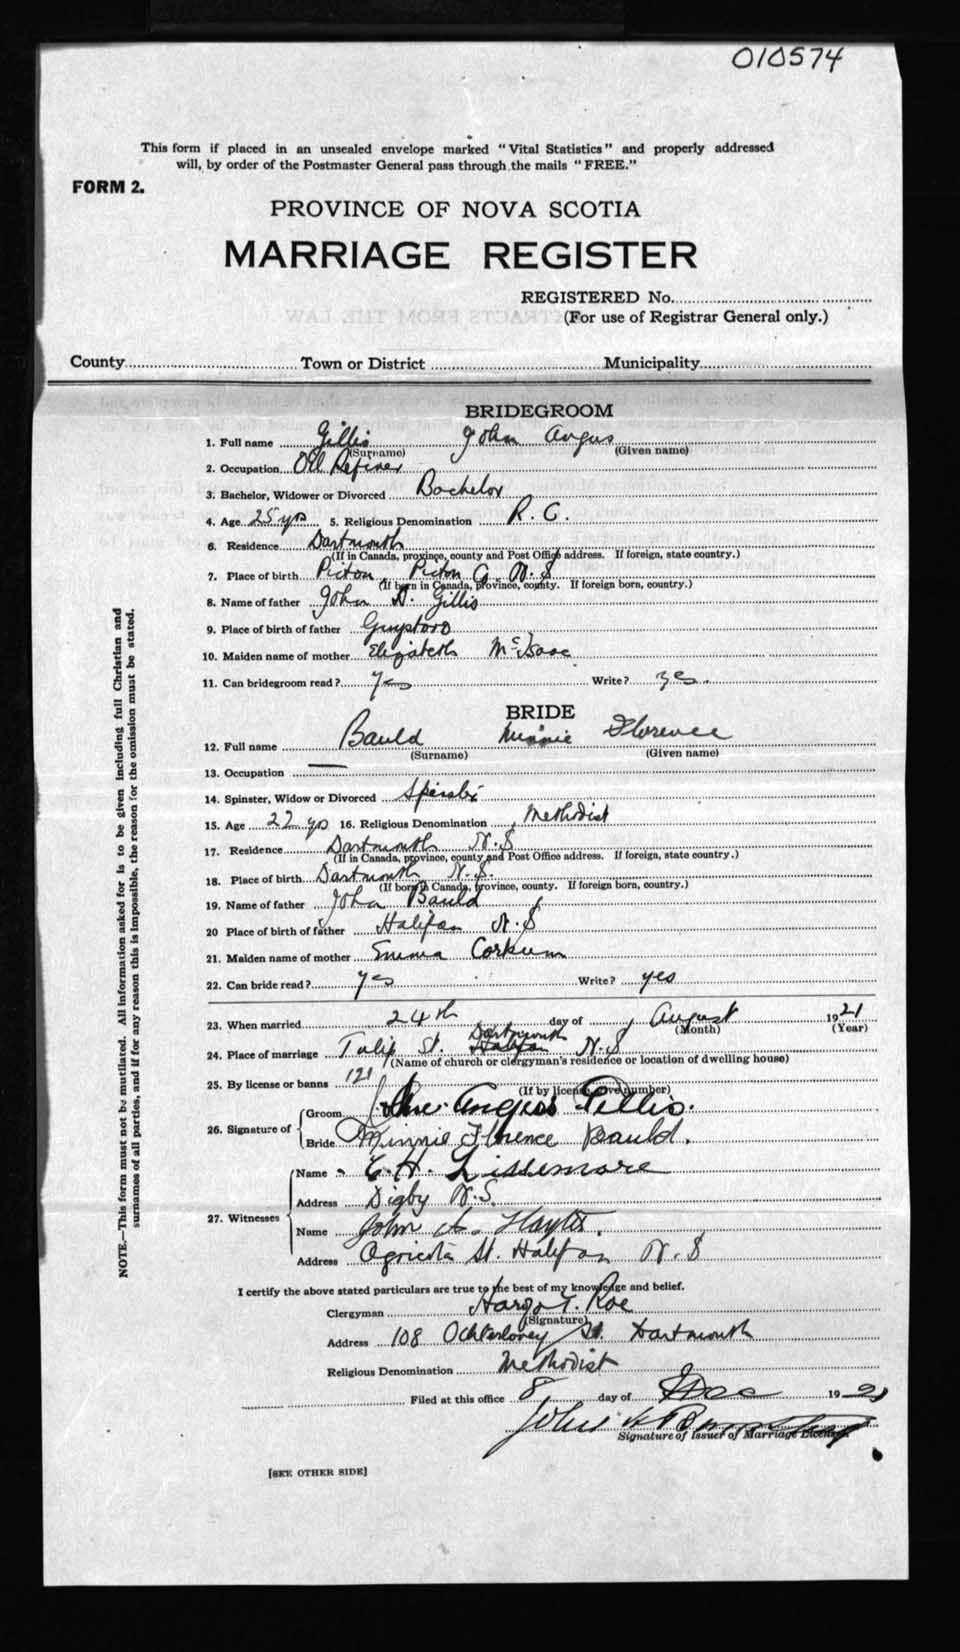 010574
This form if placed in an unsealed envelope marked "Vital Statistics" and properly addressed
will, by order of the Postmaster General pass through the mails "FREE."
FORM 2.
PROVINCE OF NOVA SCOTIA
MARRIAGE REGISTER
REGISTERED No.
(For use of Registrar General only.)
County Town or District Municipality
BRIDEGROOM
1. Full name Gillis John Angus
(Surname) (Given name)
2. Occupation Oil Refiner
3. Bachelor, Widower or Divorced Bachelor
4. Age 25 yrs 5. Religious Denomination R. C.
6. Residence Dartmouth
(If in Canada, province, county and Post Office address. If foreign, state country.)
7. Place of birth Picton, Picton Co N. S
(If born in Canada, province, county. If foreign born, country.)
8. Name of father John D. Gillis
9. Place of birth of father
10. Maiden name of mother Elizabeth McIsaac
11. Can bridegroom read? yes Write? yes.
BRIDE
12. Full name Bauld Minnie Florence
(Surname) (Given name)
13. Occupation —
14. Spinster, Widow or Divorced Spinster
15. Age 22 yrs 16. Religious Denomination Methodist
17. Residence Dartmouth N. S
(If in Canada, province, county and Post Office address. If foreign, state country.)
18. Place of birth Dartmouth N. S.
(If born in Canada, province, county. If foreign born, country.)
19. Name of father John Bauld
20 Place of birth of father Halifax N. S
21. Maiden name of mother Emma Corkum
22. Can bride read? yes Write? yes
23. When married 24th day of August 1921
(Month) (Year)
Dartmouth
24. Place of marriage Tulip St. Halifax N. S
(Name of church or clergyman's residence or location of dwelling house)
25. By license or banns 121
(If by license, give number)
26. Signature of
Groom Angus Gillis.
Bride Minnie Florence Bauld.
27. Witnesses
Name C. H. Lissemore
Address Digby N. S.
Name John A. Hayter.
Address Agricola St. Halifax N. S
I certify the above stated particulars are true to the best of my knowledge and belief.
Clergyman T. Roe
(Signature)
Address 108 Ochterloney St. Dartmouth
Religious Denomination Methodist
Filed at this office 8 day of Dec 1921
John
Signature of Issuer of Marriage License.
[SEE OTHER SIDE]
NOTE.—This form must not be mutilated. All information asked for is to be given including full Christian and
surnames of all parties, and if for any reason this is impossible, the reason for the omission must be stated.